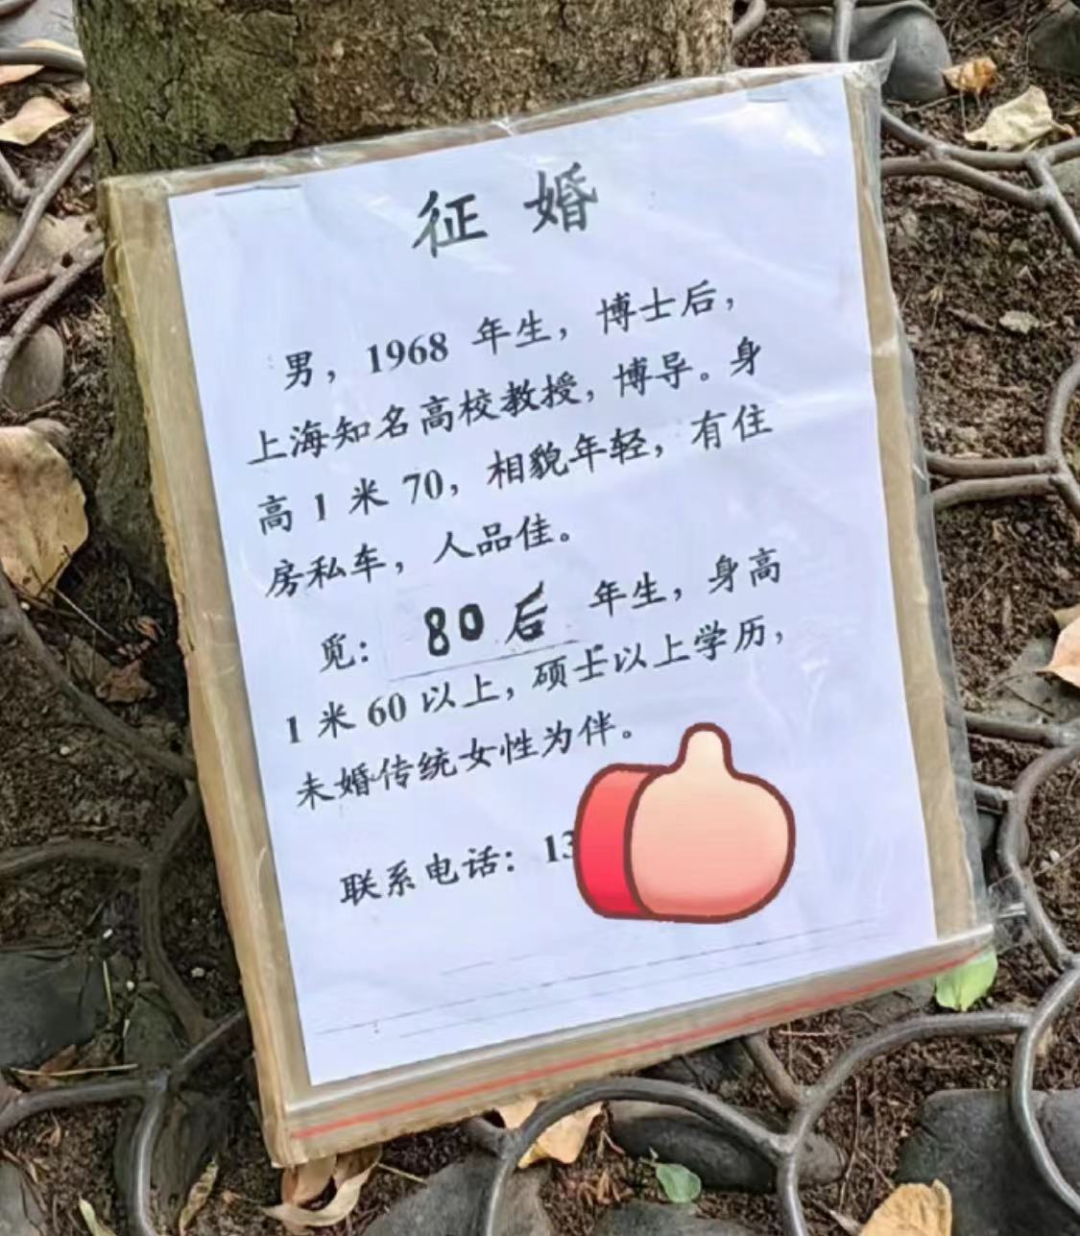 征婚
男，1968年生，博士后，
上海知名高校教授，博导。身
高1米70，相貌年轻，有住
房私车，人品佳。
觅：80后年生，身高
1米60以上，硕士以上学历，
未婚传统女性为伴。
联系电话：13